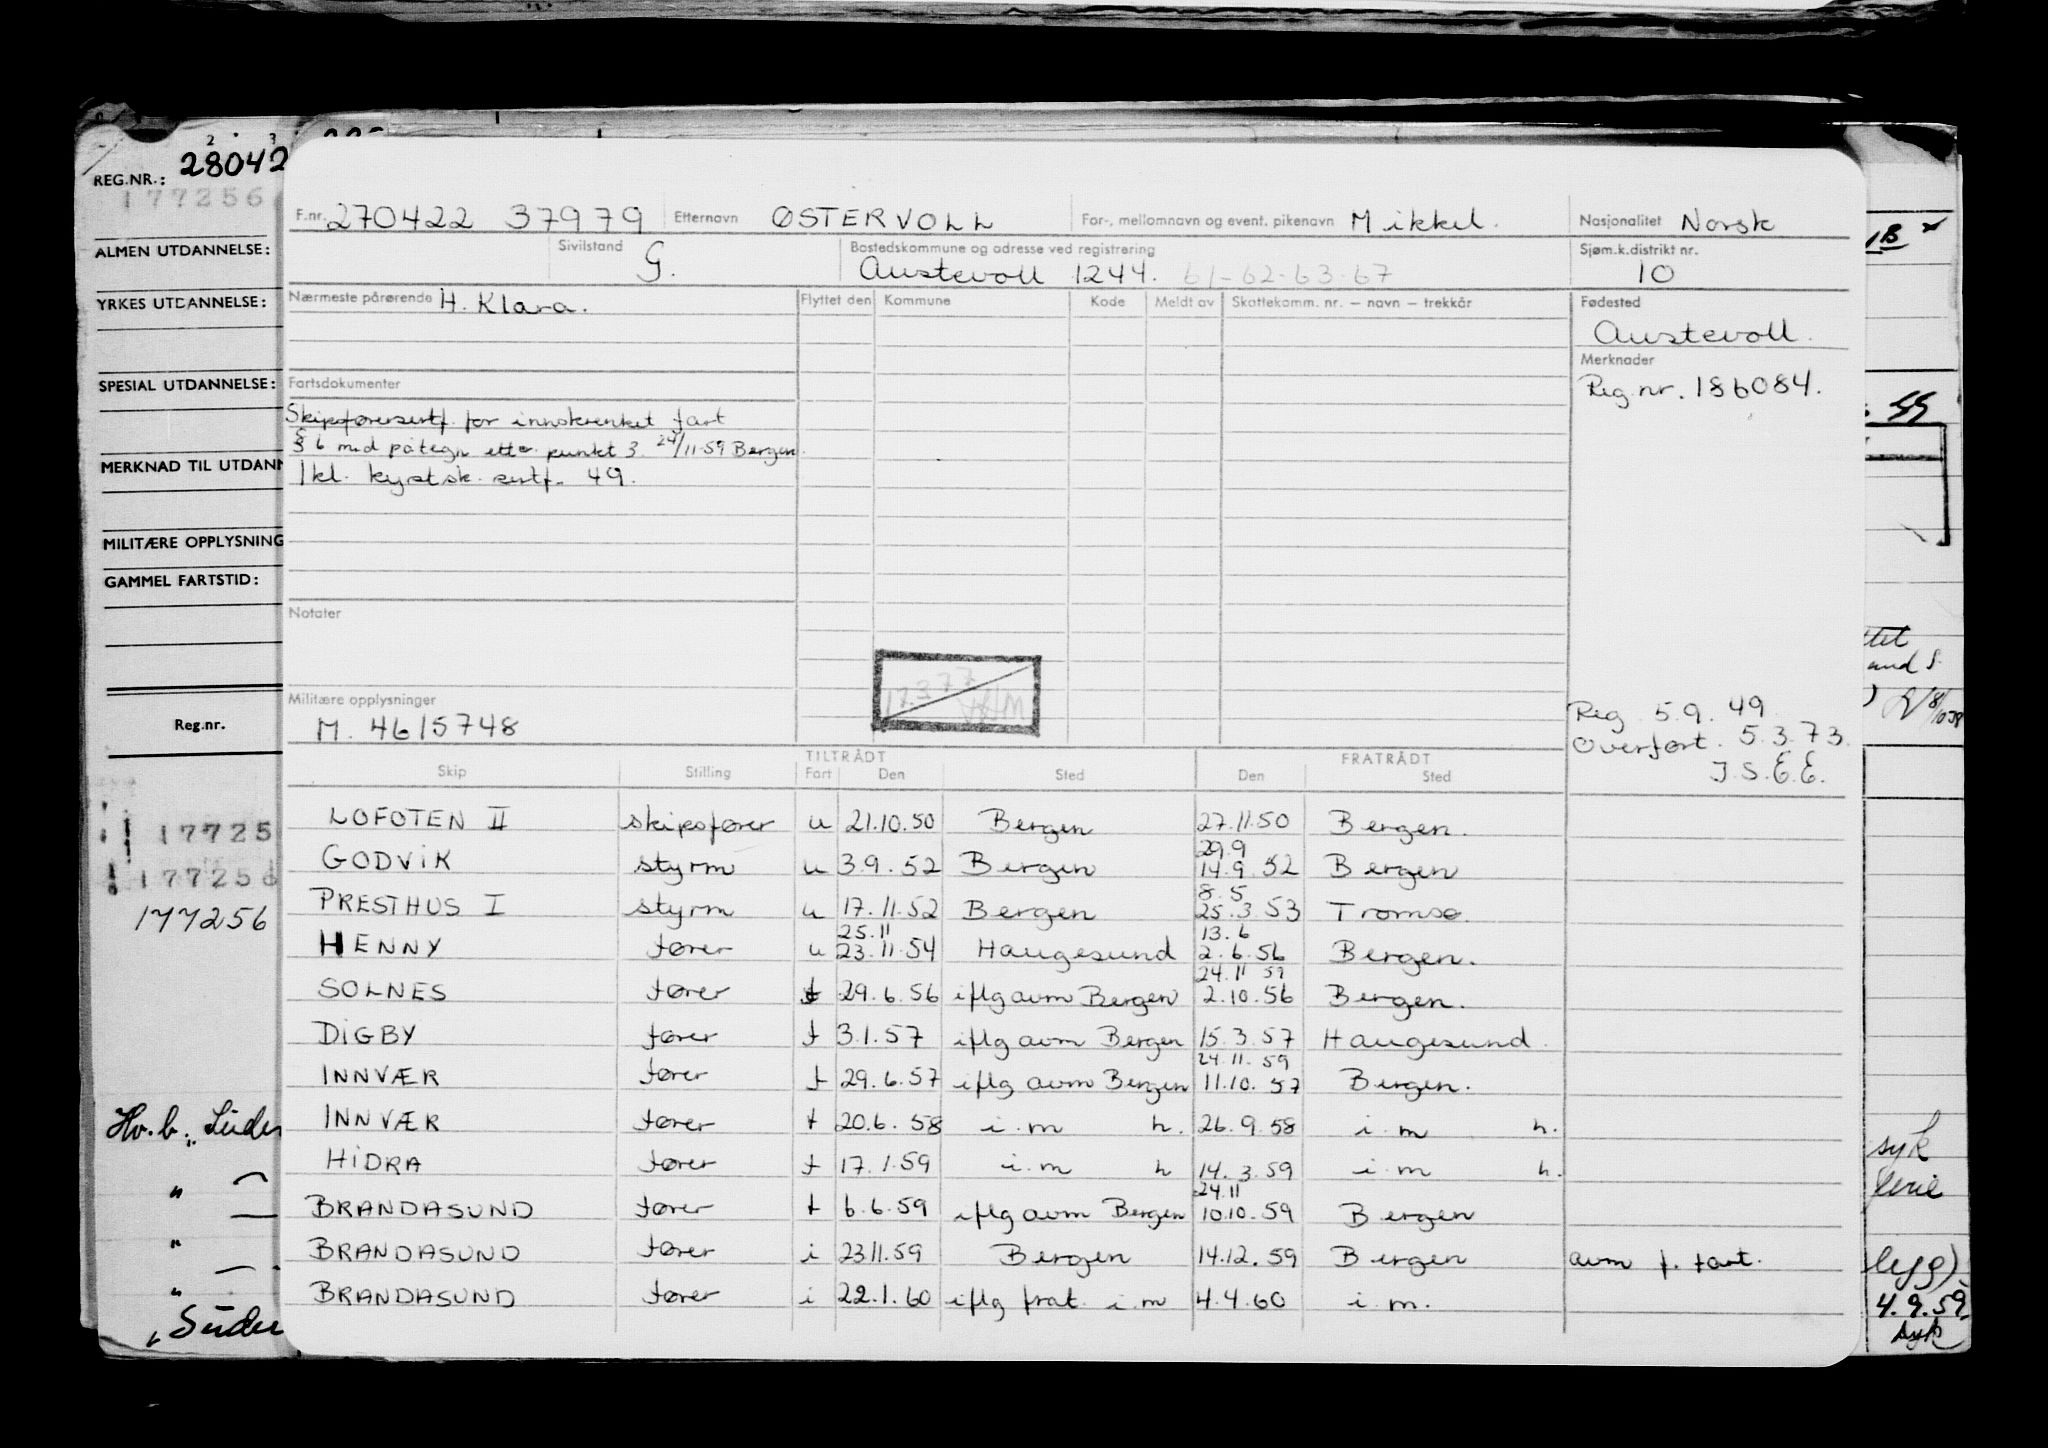 REG.NR.: 28042
177256
ALMEN UTDANNELSE:
YRKES UTDANNELSE:
SPESIAL UTDANNELSE:
MERKNAD TIL UTDANN
MILITÆRE OPPLYSNING
GAMMEL FARTSTID:
Reg.nr.
17725
177256
177256
Hv.b.
F.nr. 270422 37979 Etternavn ØSTERVOLL For-, mellomnavn og event. pikenavn Mikkel. Nasjonalitet Norsk
Sivilstand G. Bostedskommune og adresse ved registrering Austevoll 1244. 61-62-63-67 Sjøm.k.distrikt nr. 10
Nærmeste pårørende H. Klara. Flyttet den Kommune Kode Meldt av Skattekomm. nr. – navn – trekkår Fødested
Austevoll.
Merknader
Reg.nr. 186084.
Fartsdokumenter
Skipsførersertf. for innskrenket fart
§ 6 med påtegn etter punkt 3. 24/11-59 Bergen.
1kl. kystsk. sertf. 49.
Notater
17.3.77
Militære opplysninger
M. 4615748
Reg 5.9.49
Overført. 5.3.73.
J.S.E.E.
TILTRÅDT FRATRÅDT
Skip Stilling Fart Den Sted Den Sted
LOFOTEN II skipsfører u 21.10.50 Bergen 27.11.50 Bergen.
29.9
GODVIK styrm u 3.9.52 Bergen 14.9.52 Bergen
8.5
PRESTHUS I styrm u 17.11.52 Bergen 25.3.53 Tromsø.
25.11 13.6
HENNY fører u 23.11.54 Haugesund 2.6.56 Bergen.
24.11 59
SOLNES fører f 29.6.56 iflg avm Bergen 2.10.56 Bergen.
DIGBY fører f 3.1.57 iflg avm Bergen 15.3.57 Haugesund.
24.11.59
INNVÆR fører f 29.6.57 iflg avm Bergen 11.10.57 Bergen.
INNVÆR fører f 20.6.58 i.m h. 26.9.58 i.m h.
HIDRA fører f 17.1.59 i.m h 14.3.59 i.m h.
24.11
BRANDASUND fører f 6.6.59 iflg avm Bergen 10.10.59 Bergen
BRANDASUND fører i 23.11.59 Bergen 14.12.59 Bergen avm f. fart.
BRANDASUND fører i 22.1.60 iflg frat. i.m 4.4.60 i.m.
syk
4.9.59
syk